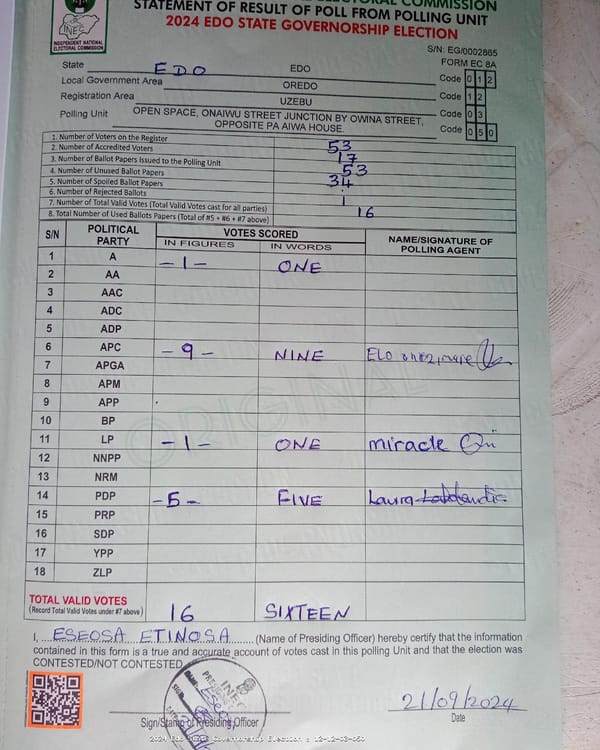 COMMISSION
STATEMENT OF RESULT OF POLL FROM POLLING UNIT
2024 EDO STATE GOVERNORSHIP ELECTION
INEC
INDEPENDENT NATIONAL
ELECTORAL COMMISSION
S/N: EG/0002865
FORM EC 8A
State EDO EDO Code 0 1 2
Local Government Area OREDO Code 1 2
Registration Area UZEBU Code 0 3
Polling Unit OPEN SPACE, ONAIWU STREET JUNCTION BY OWINA STREET, OPPOSITE PA AIWA HOUSE. Code 0 5 0
1. Number of Voters on the Register 53
2. Number of Accredited Voters 17
3. Number of Ballot Papers Issued to the Polling Unit 53
4. Number of Unused Ballot Papers 34
5. Number of Spoiled Ballot Papers
6. Number of Rejected Ballots 1
7. Number of Total Valid Votes (Total Valid Votes cast for all parties) 16
8. Total Number of Used Ballots Papers (Total of #5 + #6 + #7 above)
S/N POLITICAL PARTY VOTES SCORED NAME/SIGNATURE OF POLLING AGENT
IN FIGURES IN WORDS
1 A -1- ONE
2 AA
3 AAC
4 ADC
5 ADP
6 APC -9- NINE
7 APGA
8 APM
9 APP
10 BP
11 LP -1- ONE miracle
12 NNPP
13 NRM
14 PDP -5- FIVE Laura
15 PRP
16 SDP
17 YPP
18 ZLP
ORIGINAL
TOTAL VALID VOTES
(Record Total Valid Votes under #7 above) 16 SIXTEEN
I, ESEOSA ETINOSA (Name of Presiding Officer) hereby certify that the information
contained in this form is a true and accurate account of votes cast in this polling Unit and that the election was
CONTESTED/NOT CONTESTED
INEC
Sign/Stamp of Presiding Officer
21/09/2024
Date
2024 Edo State Governorship Election : 12-12-03-050